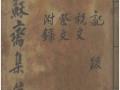 記 跋
祝文
祭文
附錄
蘇齋集